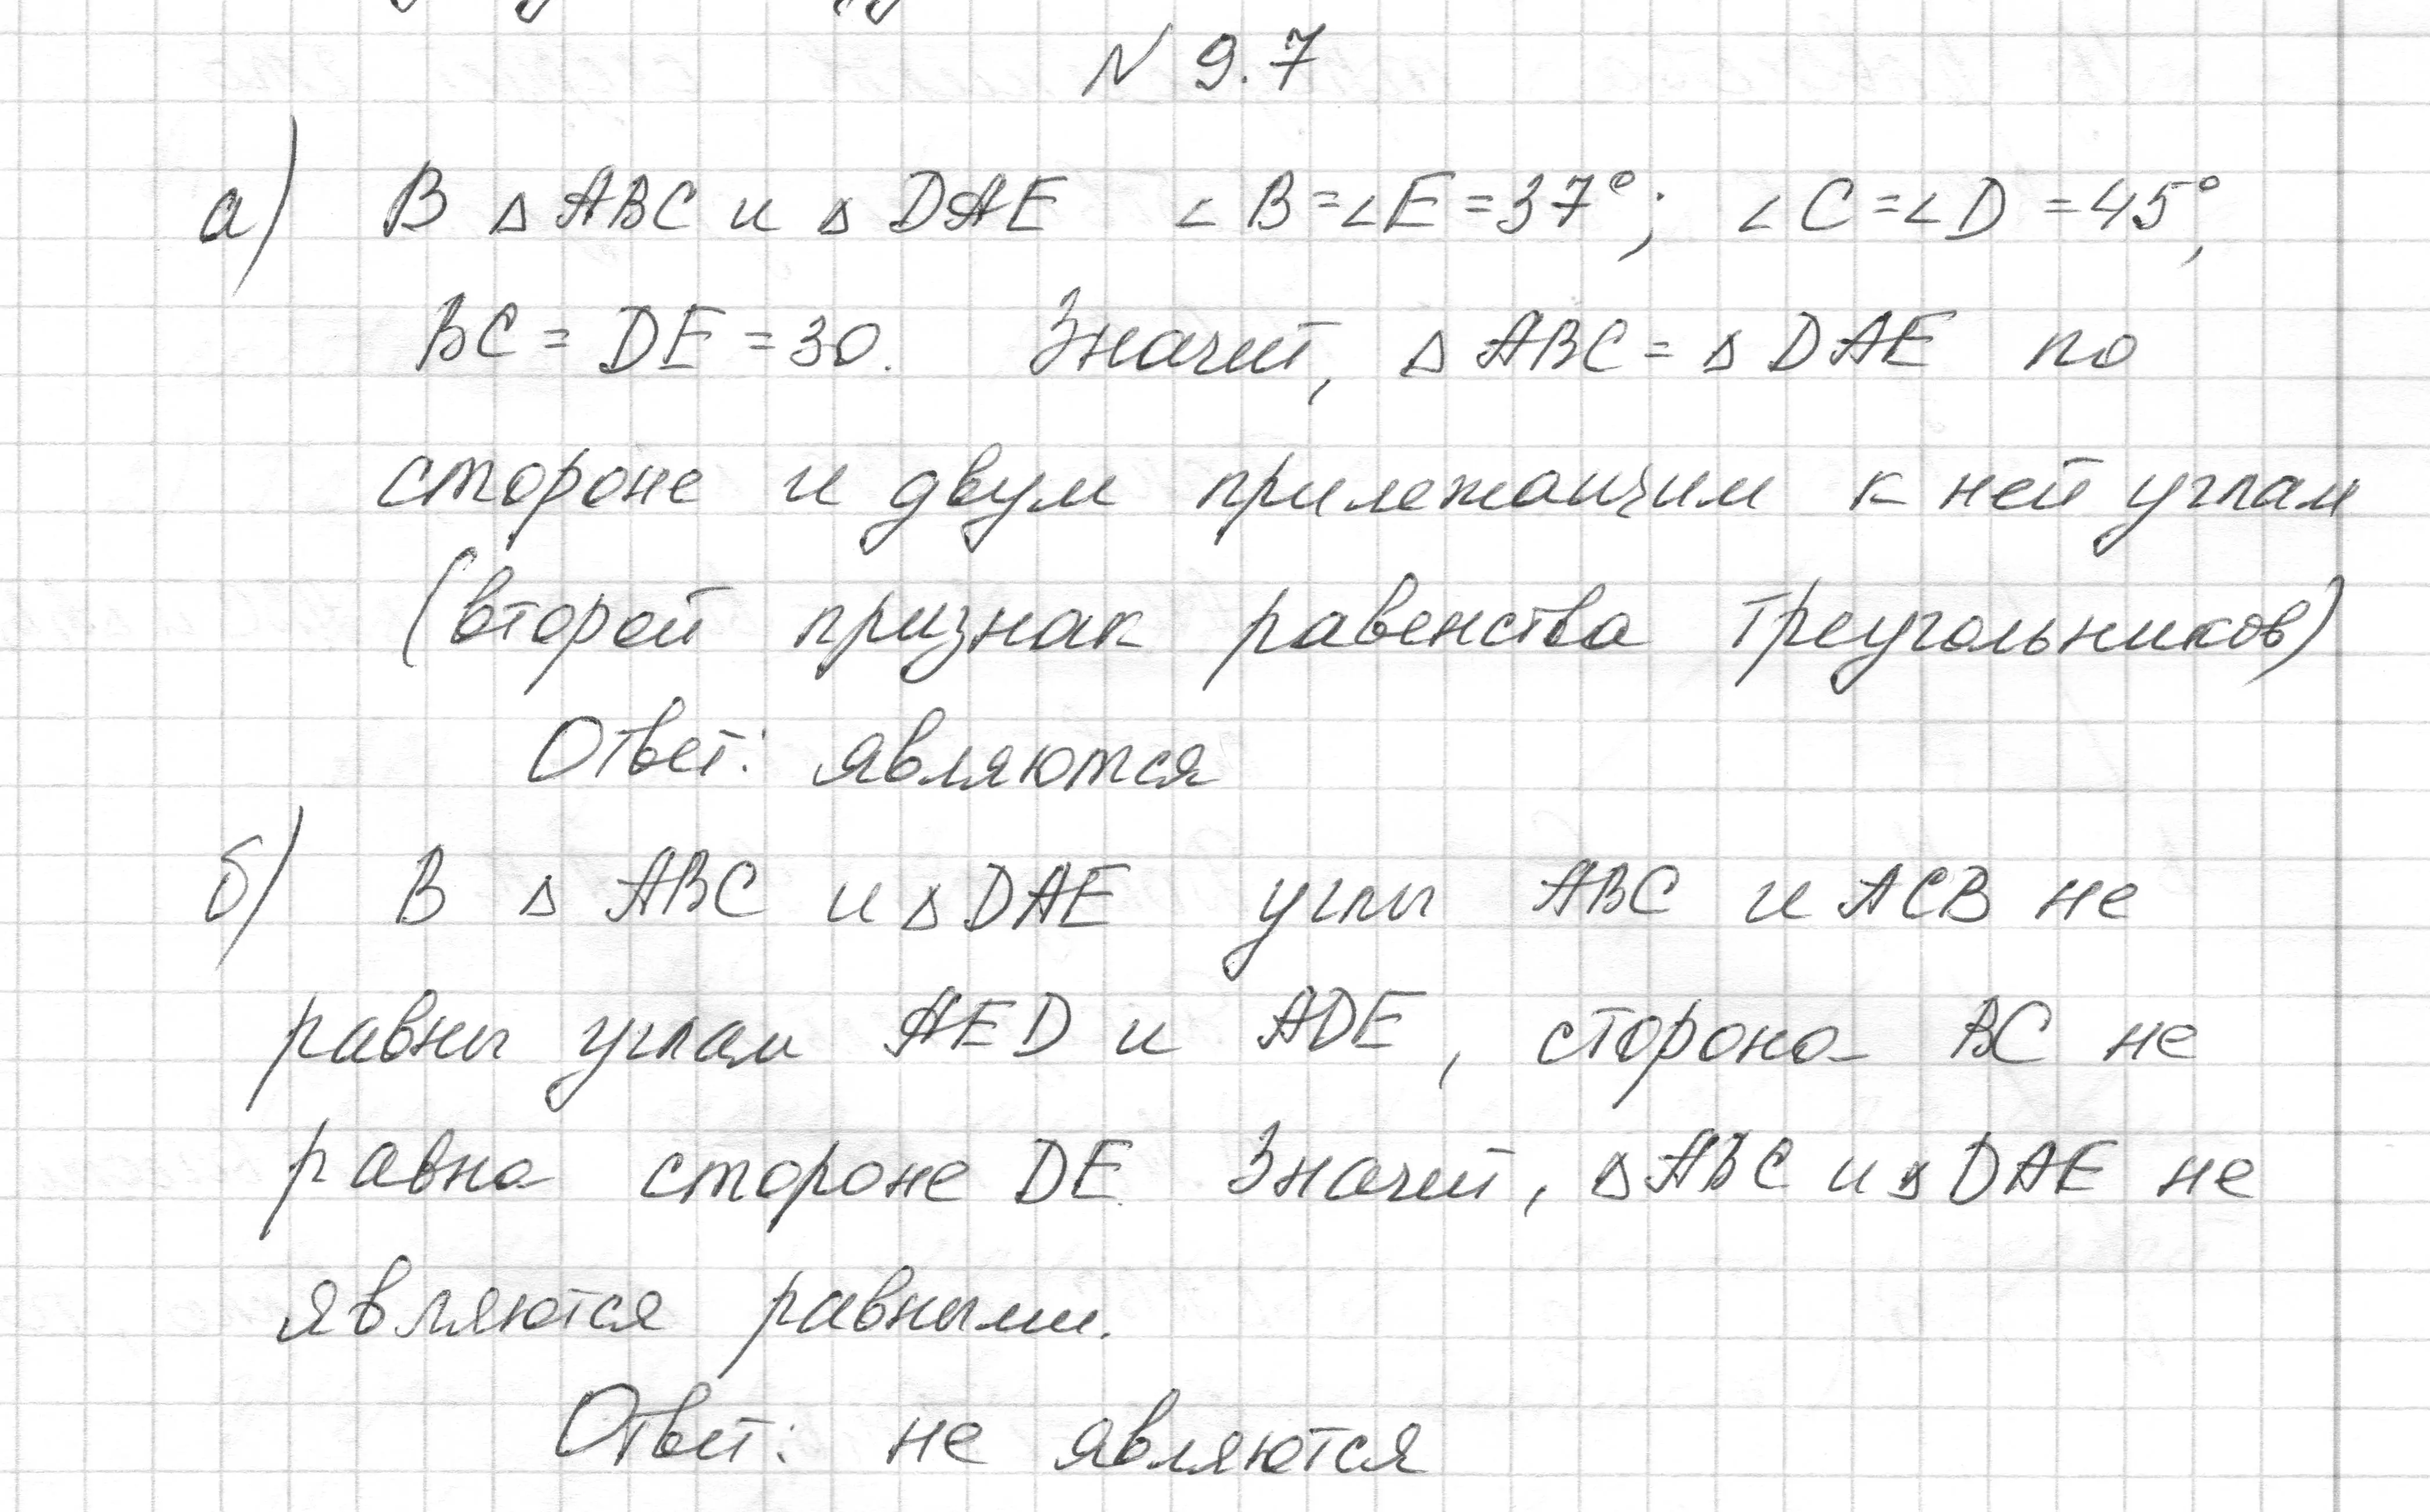 № 9.7
а) В △ ABC и △ DAE ∠B=∠E=37°; ∠C=∠D=45°,
BC = DE = 30. Значит, △ ABC = △ DAE по
стороне и двум прилежащим к ней углам
(второй признак равенства треугольников)
Ответ: являются
б) В △ ABC и △ DAE углы ABC и ACB не
равны углам AED и ADE, сторона BC не
равна стороне DE. Значит, △ ABC и △ DAE не
являются равными.
Ответ: не являются